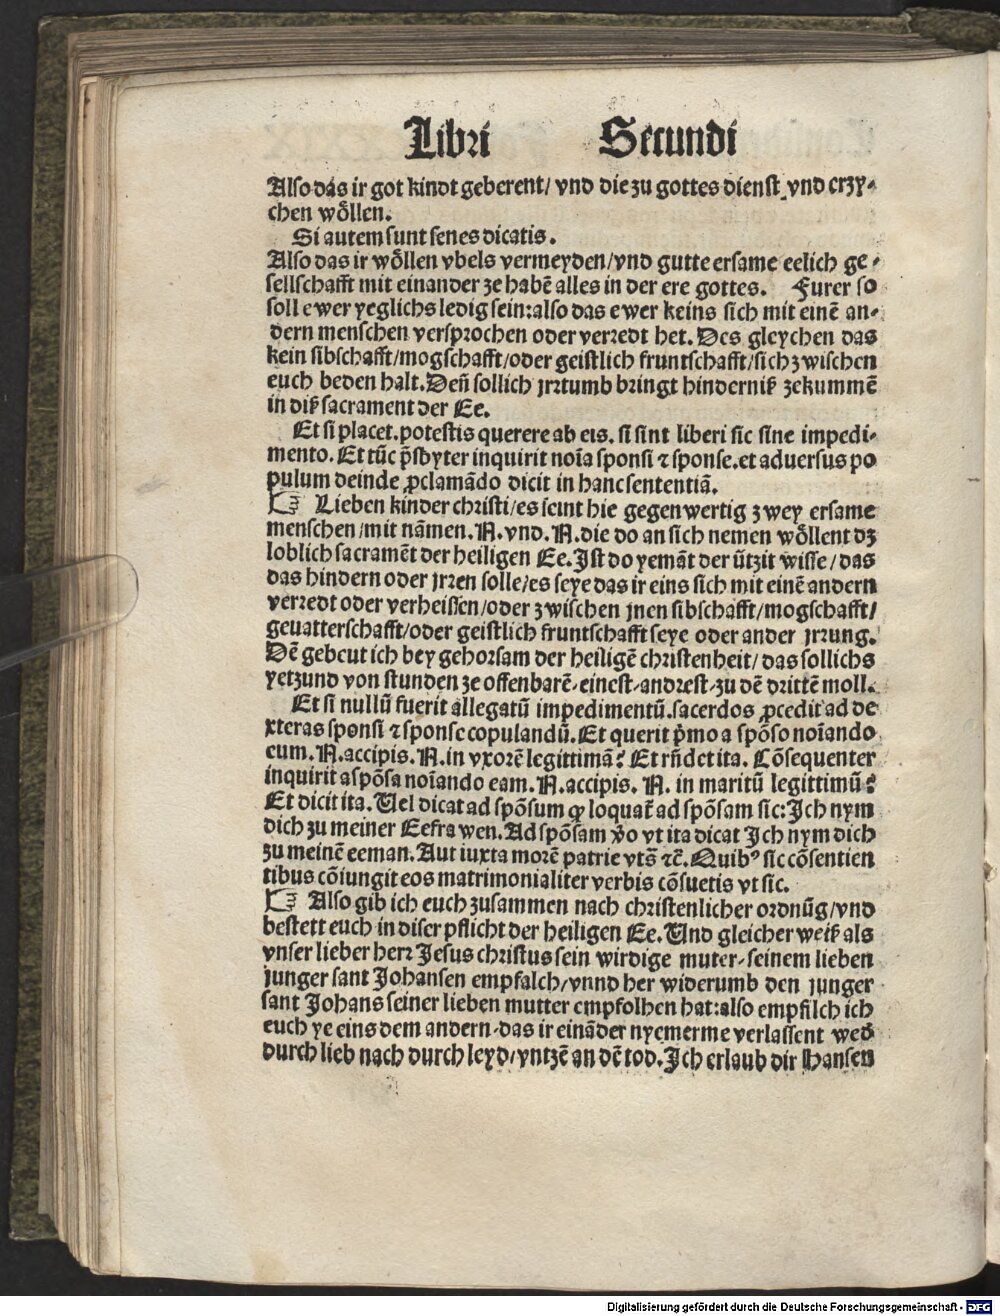 Libri Secundi
Also das ir got kindt geberent/ vnd die zu gottes dienst vnd erzy⸗
chen wöllen.
Si autem sunt senes dicatis.
Also das ir wöllen vbels vermeyden/vnd gutte ersame eelich ge⸗
sellschafft mit einander ze habē alles in der ere gottes. Furer so
soll ewer yeglichs ledig sein:also das ewer keins sich mit einē an⸗
dern menschen versprochen oder verredt het. Des gleychen das
kein sibschafft/mogschafft/oder geistlich fruntschafft/sich zwischen
euch beden halt. Deñ sollich jrrtumb bringt hinderniß zekummē
in diß sacrament der Ee.
Et si placet. potestis querere ab eis. si sint liberi sic sine impedi⸗
mento. Et tūc p̄sbyter inquirit noīa sponsi ⁊ sponse. et aduersus po
pulum deinde ꝓclamādo dicit in hanc sententiā.
☞ Lieben kinder christi/es seint hie gegenwertig zwey ersame
menschen/mit nāmen. N. vnd. N. die do an sich nemen wöllent dz
loblich sacramēt der heiligen Ee. Ist do yemāt der ützit wisse/das
das hindern oder jrren solle/es seye das ir eins sich mit einē andern
verredt oder verheissen/oder zwischen jnen sibschafft/mogschafft/
geuatterschafft/oder geistlich fruntschafft seye oder ander jrrung.
Dē gebeut ich bey gehorsam der heiligē christenheit/das sollichs
yetzund von stunden ze offenbarē⸗einest⸗andrest⸗zu dē drittē moll.
Et si nullū fuerit allegatū impedimentū. sacerdos ꝓcedit ad de
xteras sponsi ⁊ sponse copulandū. Et querit p̄mo a spōso noīando
eum. N. accipis. N. in vxorē legittimā? Et rñdet ita. Cōsequenter
inquirit a spōsa noīando eam. N. accipis. N. in maritū legittimū?
Et dicit ita. Uel dicat ad spōsum ꝙ loquat᷑ ad spōsam sic: Ich nym
dich zu meiner Eefrawen. Ad spōsam v̄o vt ita dicat Ich nym dich
zu meinē eeman. Aut iuxta morē patrie vts̄ ⁊c̄. Quibꝰ sic cōsentien
tibus cōiungit eos matrimonialiter verbis cōsuetis vt sic.
☞ Also gib ich euch zusammen nach christenlicher ordnūg/vnd
bestett euch in diser pflicht der heiligen Ee. Und gleicher weiß als
vnser lieber herr Jesus christus sein wirdige muter⸗seinem lieben
junger sant Johansen empfalch/vnnd her widerumb den junger
sant Johans seiner lieben mutter empfolhen hat:also empfilch ich
euch ye eins dem andern⸗das ir eināder nyemerme verlassent wed̄
durch lieb nach durch leyd/vntzē an dē tod. Ich erlaub dir Hansen
Digitalisierung gefördert durch die Deutsche Forschungsgemeinschaft - DFG